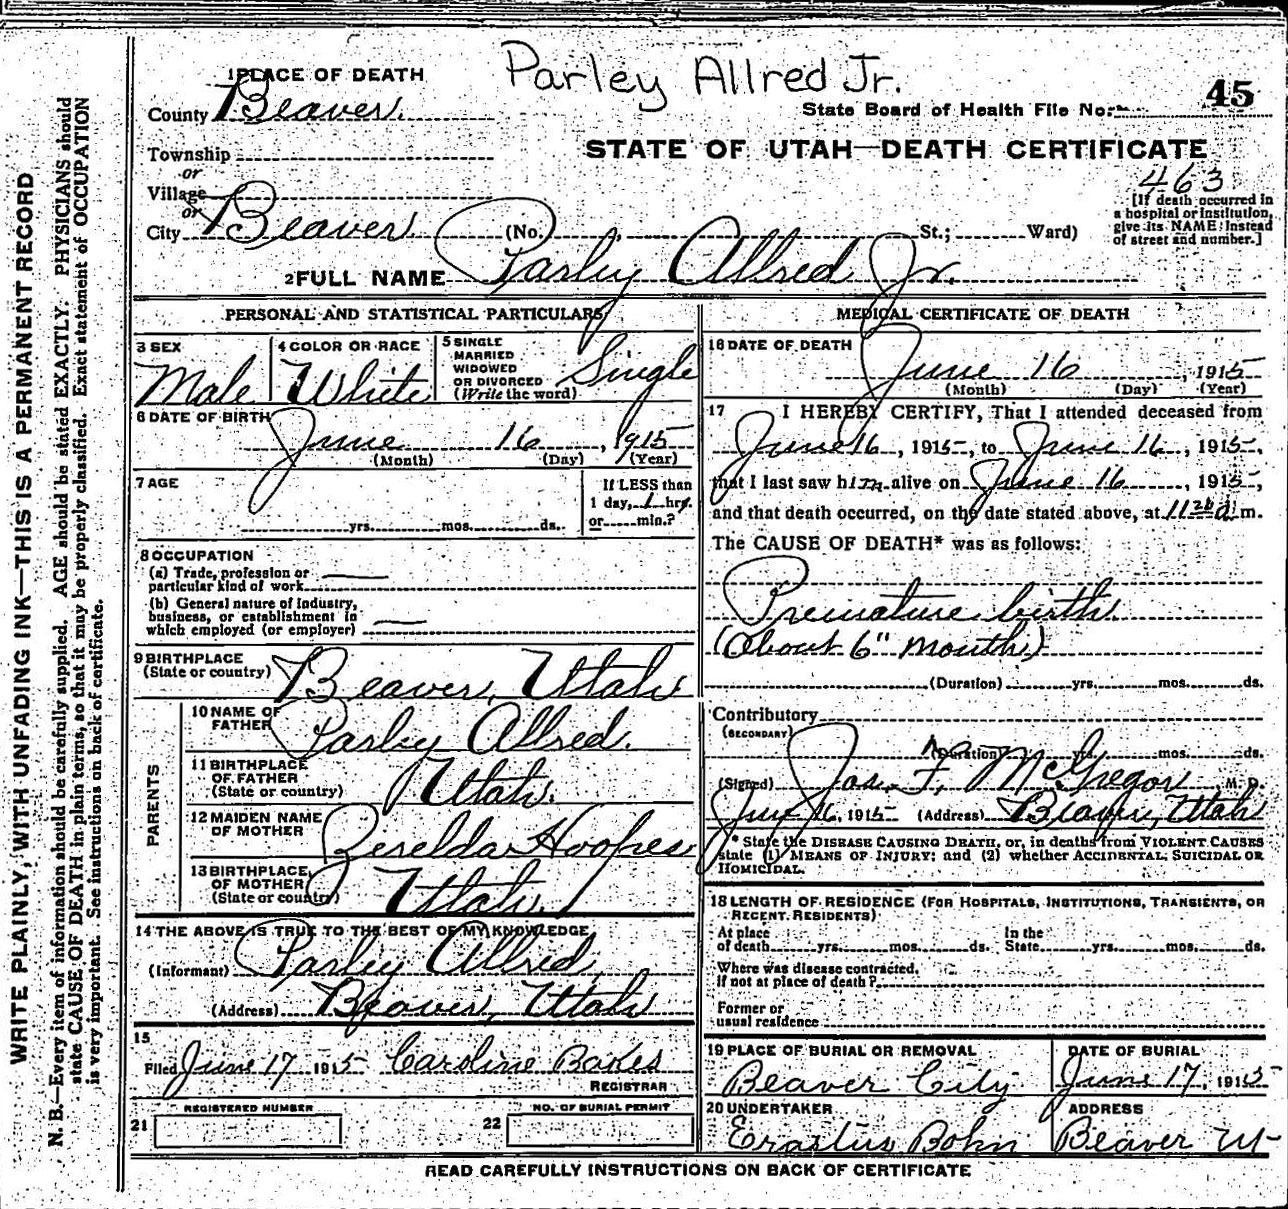 Parley Allred Jr.
1 PLACE OF DEATH
County Beaver.
State Board of Health File No. 45
Township
or
Village
or
City Beaver
STATE OF UTAH—DEATH CERTIFICATE
463
(No. St.; Ward)
[If death occurred in
a hospital or institution,
give its NAME instead
of street and number.]
2 FULL NAME Parley Allred Jr.
PERSONAL AND STATISTICAL PARTICULARS
3 SEX
Male
4 COLOR OR RACE
White
5 SINGLE
MARRIED
WIDOWED
OR DIVORCED
(Write the word)
Single
6 DATE OF BIRTH
June 16, 1915
(Month) (Day) (Year)
7 AGE
yrs. mos. ds.
If LESS than
1 day, 1 hrs.
or min.?
8 OCCUPATION
(a) Trade, profession or
particular kind of work
(b) General nature of industry,
business, or establishment in
which employed (or employer)
9 BIRTHPLACE
(State or country)
Beaver, Utah
PARENTS
10 NAME OF
FATHER
Parley Allred.
11 BIRTHPLACE
OF FATHER
(State or country)
Utah.
12 MAIDEN NAME
OF MOTHER
Zerelda Hoopes
13 BIRTHPLACE
OF MOTHER
(State or country)
Utah.
14 THE ABOVE IS TRUE TO THE BEST OF MY KNOWLEDGE
(Informant) Parley Allred
(Address) Beaver, Utah
15
Filed June 17 1915 Caroline Bakes
REGISTRAR
21 REGISTERED NUMBER
22 NO. OF BURIAL PERMIT
MEDICAL CERTIFICATE OF DEATH
16 DATE OF DEATH
June 16, 1915
(Month) (Day) (Year)
17 I HEREBY CERTIFY, That I attended deceased from
June 16, 1915, to June 16, 1915,
that I last saw him alive on June 16, 1915,
and that death occurred, on the date stated above, at 11 20 a. m.
The CAUSE OF DEATH* was as follows:
Premature birth
(About 6" month)
(Duration) yrs. mos. ds.
Contributory
(SECONDARY)
(Duration) yrs. mos. ds.
(Signed) Jas. F. McGregor M. D.
June 16, 1915 (Address) Beaver, Utah
* State the DISEASE CAUSING DEATH, or, in deaths from VIOLENT CAUSES
state (1) MEANS OF INJURY; and (2) whether ACCIDENTAL, SUICIDAL OR
HOMICIDAL.
18 LENGTH OF RESIDENCE (FOR HOSPITALS, INSTITUTIONS, TRANSIENTS, OR
RECENT RESIDENTS)
At place
of death yrs. mos. ds.
In the
State yrs. mos. ds.
Where was disease contracted,
if not at place of death?
Former or
usual residence
19 PLACE OF BURIAL OR REMOVAL
Beaver City
DATE OF BURIAL
June 17, 1915
20 UNDERTAKER
Erastus Bohn
ADDRESS
Beaver Ut
READ CAREFULLY INSTRUCTIONS ON BACK OF CERTIFICATE
WRITE PLAINLY, WITH UNFADING INK—THIS IS A PERMANENT RECORD
N. B.—Every item of information should be carefully supplied. AGE should be stated EXACTLY. PHYSICIANS should
state CAUSE OF DEATH in plain terms, so that it may be properly classified. Exact statement of OCCUPATION
is very important. See instructions on back of certificate.